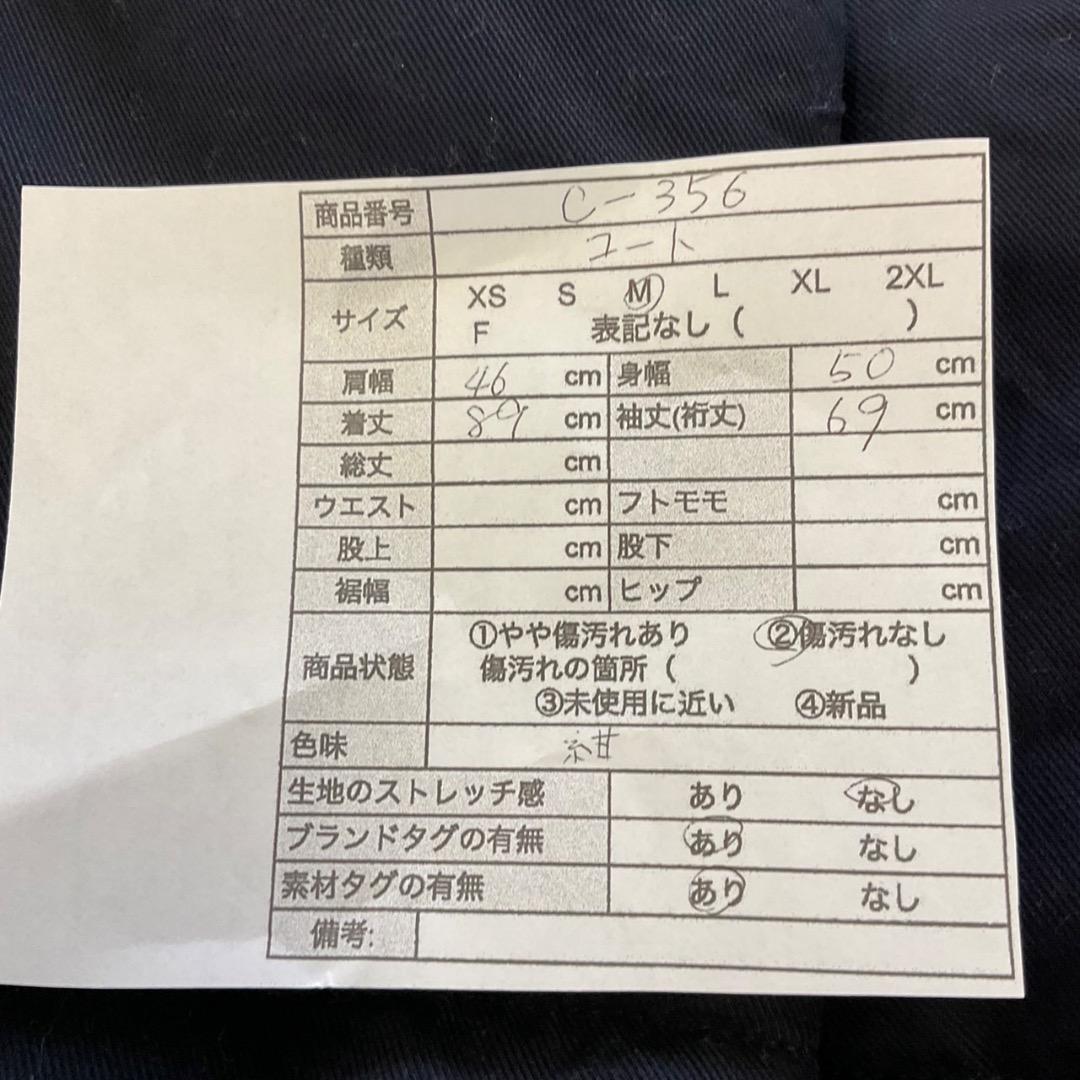 商品番号 C-356
種類 コート
サイズ XS S M L XL 2XL
F 表記なし ( )
肩幅 46 cm 身幅 50 cm
着丈 89 cm 袖丈(裄丈) 69 cm
総丈 cm
ウエスト cm フトモモ cm
股上 cm 股下 cm
裾幅 cm ヒップ cm
商品状態 ①やや傷汚れあり ②傷汚れなし
傷汚れの箇所 ( )
③未使用に近い ④新品
色味 紺
生地のストレッチ感 あり なし
ブランドタグの有無 あり なし
素材タグの有無 あり なし
備考: